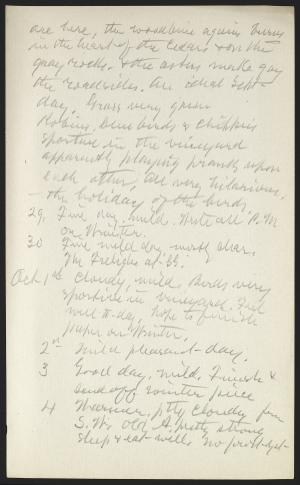 are here, the woodbine again burns
in the heart of the cedars & on the
gray rocks. & the asters make gay
the roadsides. An ideal Sept-
day. Grass very green
Robins, blue birds & chippies
sportive in the vineyard
apparently playing pranks upon
each other, all very hilarious.
— the holiday of the birds
29, Fine day, mild. Write all P.M.
on Winter.
30 Fine mild day mostly clear.
Oct 1st Cloudy, mild. Birds very
sportive in vineyard. Feel
well to-day. hope to finish
paper on Winter.
2nd Mild pleasant-day.
3 Good day, mild. Finish &
send off winter piece
4 Warmer, ptly cloudy from
S.W. Old A. pretty strong
sleep & eat well. No frost yet-